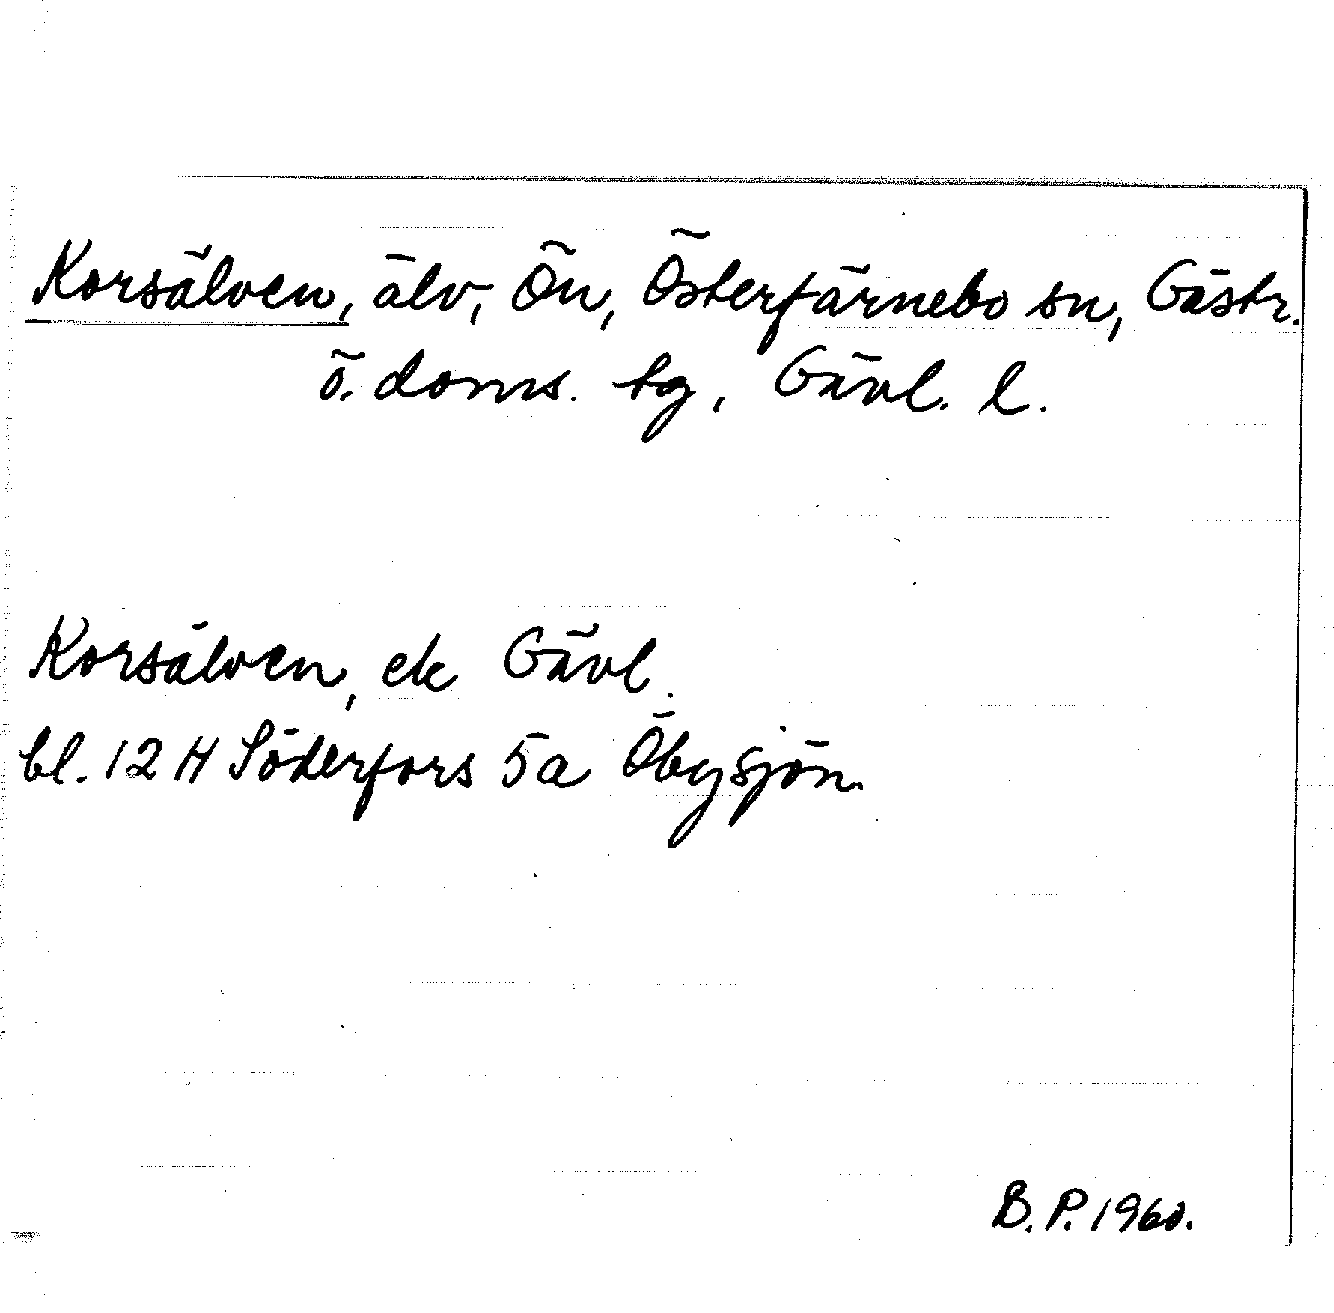 Korsälven, älv, Ön, Österfärnebo sn, Gästr.
ö. doms. tg, Gävl. l.
Korsälven, ek Gävl.
bl. 12 H Söderfors 5a Öbysjön.
B. P. 1960.